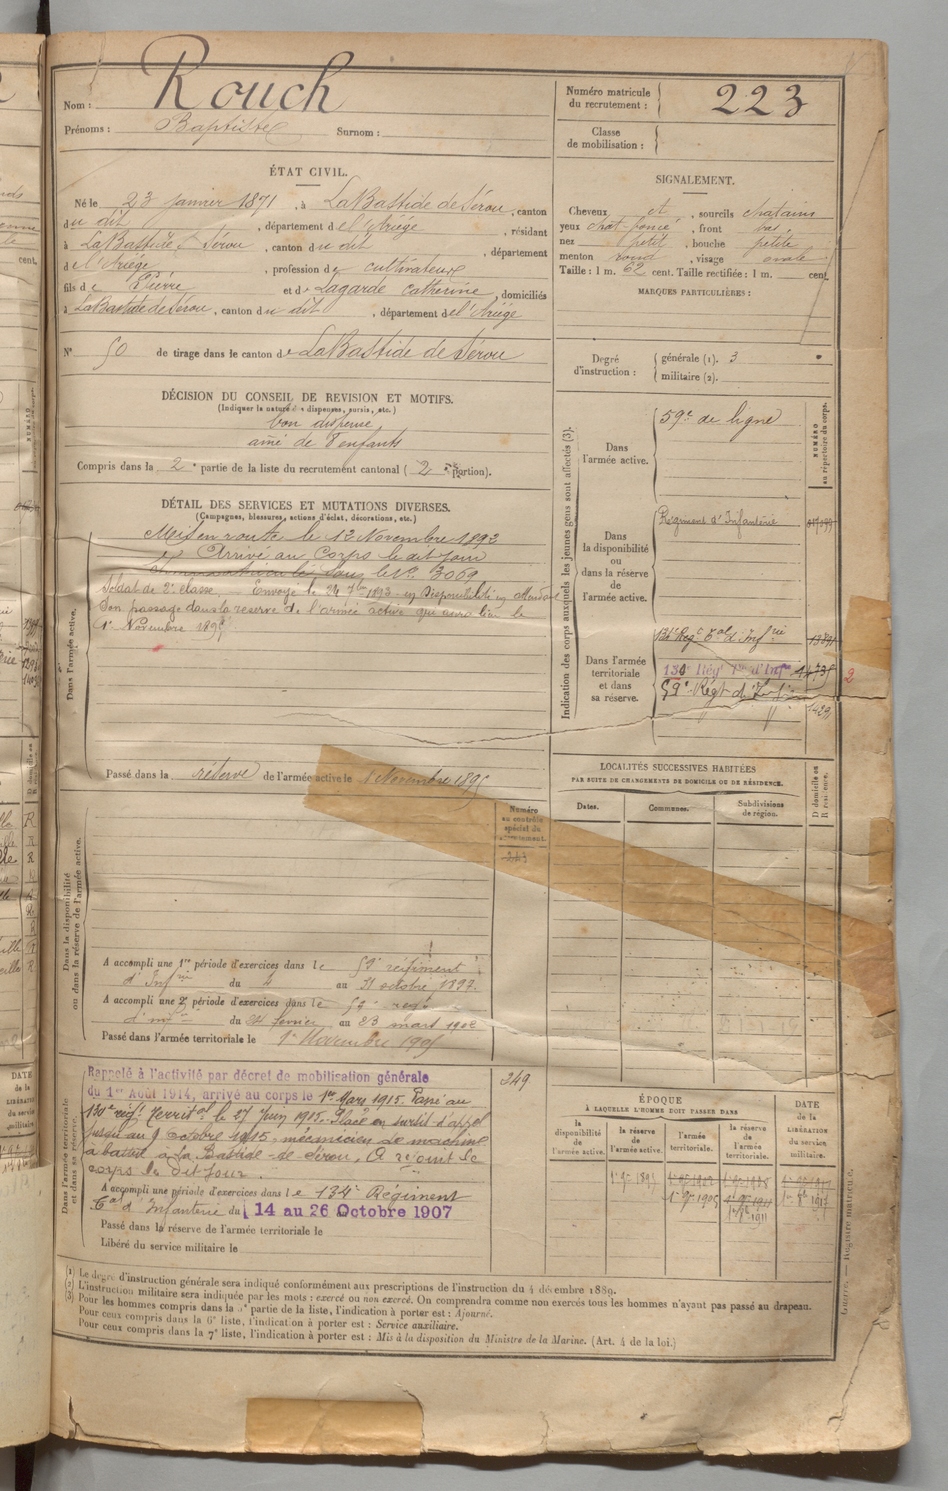 Nom : Rouch
Prénoms : Baptiste Surnom :
Numéro matricule du recrutement : 223
Classe de mobilisation :
ÉTAT CIVIL.
Né le 23 janvier 1871, à LaBastide de Sérou, canton
du dit, département de l'Ariége, résidant
à LaBastide de Sérou, canton du dit, département
de l'Ariége, profession de cultivateur
fils de Pierre et de Lagarde Catherine, domiciliés
à LaBastide de Sérou, canton du dit, département de l'Ariége
N° 50 de tirage dans le canton de LaBastide de Sérou
SIGNALEMENT.
Cheveux et, sourcils chatains
yeux chat-foncé, front bas,
nez petit, bouche petite
menton rond, visage ovale
Taille : 1 m. 62 cent. Taille rectifiée : 1 m. cent.
MARQUES PARTICULIÈRES :
Degré d'instruction : générale (1). 3
militaire (2).
DÉCISION DU CONSEIL DE REVISION ET MOTIFS.
(Indiquer la nature des dispenses, sursis, etc.)
bon dispensé
ainé de 7 enfants
Compris dans la 2e partie de la liste du recrutement cantonal (2e portion).
DÉTAIL DES SERVICES ET MUTATIONS DIVERSES.
(Campagnes, blessures, actions d'éclat, décorations, etc.)
Dans l'armée active.
Mis en route le 12 Novembre 1892
Arrivé au Corps le dit jour
le N° 3069
Soldat de 2e classe, Envoyé le 24 7bre 1893 en Disponibilité en attendant
Son passage dans la réserve de l'armée active qui aura lieu le
1er Novembre 1895
Passé dans la réserve de l'armée active le 1 Novembre 1895
Indication des corps auxquels les jeunes gens sont affectés (3).
NUMÉRO au répertoire du corps.
Dans l'armée active. 59e de ligne
Dans la disponibilité ou dans la réserve de l'armée active. Régiment d'Infanterie
Dans l'armée territoriale et dans sa réserve. 134e Régt Tal d'Infrie
130e Régt Tal d'Infie
59e Régt d'Infie
LOCALITÉS SUCCESSIVES HABITÉES
PAR SUITE DE CHANGEMENTS DE DOMICILE OU DE RÉSIDENCE.
Dates. Communes. Subdivisions de région. D domicile ou R résidence.
Dans la disponibilité ou dans la réserve de l'armée active.
Numéro au contrôle spécial du recrutement.
243
A accompli une 1re période d'exercices dans le 59e régiment
d'Infrie du 4 au 31 octobre 1897.
A accompli une 2e période d'exercices dans le 59e regt
d'infie du 24 fevrier au 23 mars 1902
Passé dans l'armée territoriale le 1er Novembre 1905
Dans l'armée territoriale et dans sa réserve.
Rappelé à l'activité par décret de mobilisation générale
du 1er Août 1914, arrivé au corps le 1er Mars 1915. Passé au
130e régt Territal le 27 Juin 1915. Placé en sursis d'appel
jusqu'au 9 octobre 1915 mécanicien de machine
à battre à la Bastide-de-Sérou. A rejoint le
corps le dit jour.
249
A accompli une période d'exercices dans le 134e Régiment
Tal d'Infanterie du 14 au 26 Octobre 1907
Passé dans la réserve de l'armée territoriale le
Libéré du service militaire le
ÉPOQUE
À LAQUELLE L'HOMME DOIT PASSER DANS
la disponibilité de l'armée active. la réserve de l'armée active. l'armée territoriale. la réserve de l'armée territoriale. DATE de la LIBÉRATION du service militaire.
(1) Le degré d'instruction générale sera indiqué conformément aux prescriptions de l'instruction du 4 décembre 1889.
(2) L'instruction militaire sera indiquée par les mots : exercé ou non exercé. On comprendra comme non exercés tous les hommes n'ayant pas passé au drapeau.
(3) Pour les hommes compris dans la 5e partie de la liste, l'indication à porter est : Ajourné.
Pour ceux compris dans la 6e liste, l'indication à porter est : Service auxiliaire.
Pour ceux compris dans la 7e liste, l'indication à porter est : Mis à la disposition du Ministre de la Marine. (Art. 4 de la loi.)
Registre matricule.